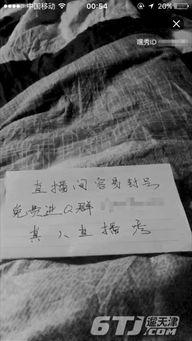 中国移动 00:54
嘿秀ID
直播间容易封号
免费进Q群
真人直播秀
6TJ 逛天津
.com